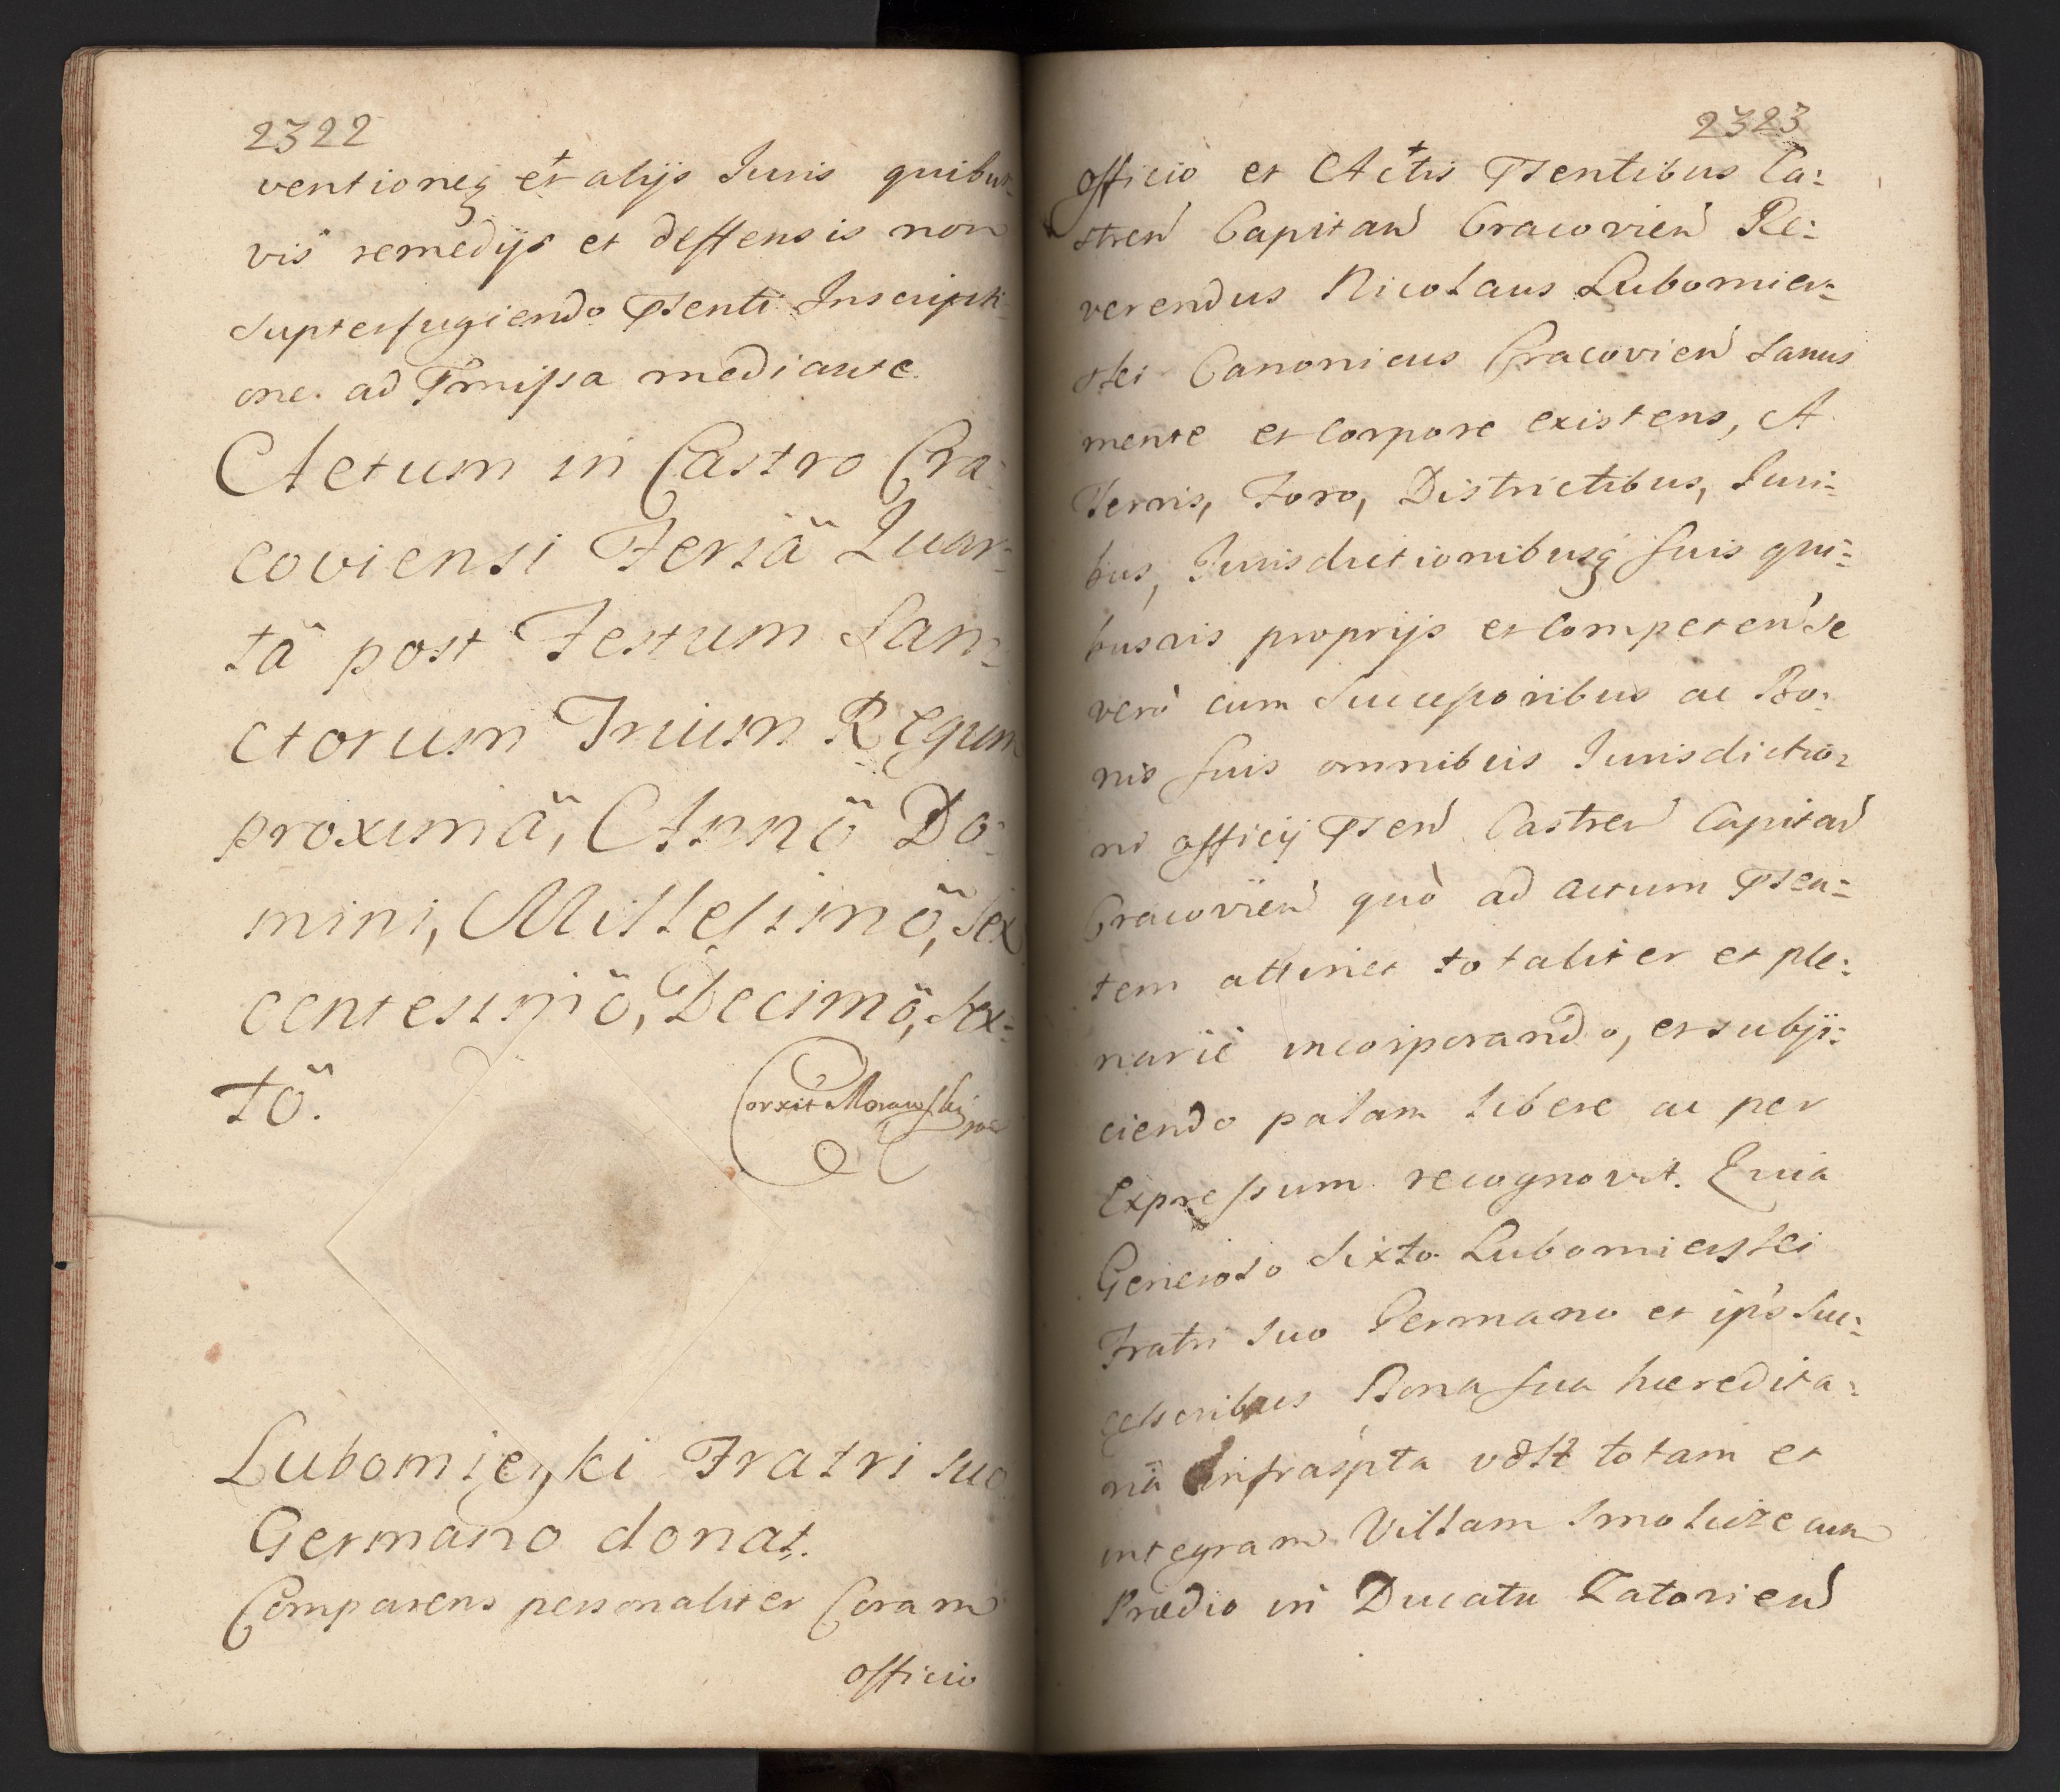 2322
ventioneq et alijs Iuris quibus-
vis remedijs et deffensis non
Supterfugiendo Psenti Inscripti-
one. ad Pmissa mediante.
Actum in Castro Cra:
coviensi Feriâ Quar:
tâ post Festum San:
ctorum Trium Regum
proximâ, Annô Do:
mini, Millesimô, Sex
centesimô, Decimô, Sex:
tô.
Corxit Morawski
Lubomięski Fratri suo
Germano donat.
Comparens personaliter Coram
officio
2323
officiò et Actis Psentibus Ca:
stren Capitan Cracovien Re:
verendus Nicolaus Lubomier:
ski Canonicus Cracovien Sanus
mente et Corpore existens, A
Terris, Foro, Districtibus, Iuri:
bus, Iurisdictionibusq suis qui:
busvis proprijs et Competen Se
verò cum Successoribus ac Bo:
nis suis omnibus Iurisdictio:
ni officij Psen Castren Capitan
Cracovien quò ad actum Psen:
tem attinet totaliter et ple:
nariè incorporando, et subji:
ciendo palam libere ac per
Expressum recognovit. Quia
Generoso Sixto Lubomierski
Fratri suo Germano et ips Suc:
cessoribus Bona sua hæredita:
ria infraspta vdlt totam et
integram Villam Smolice cum
Prædio in Ducatu Zatorien